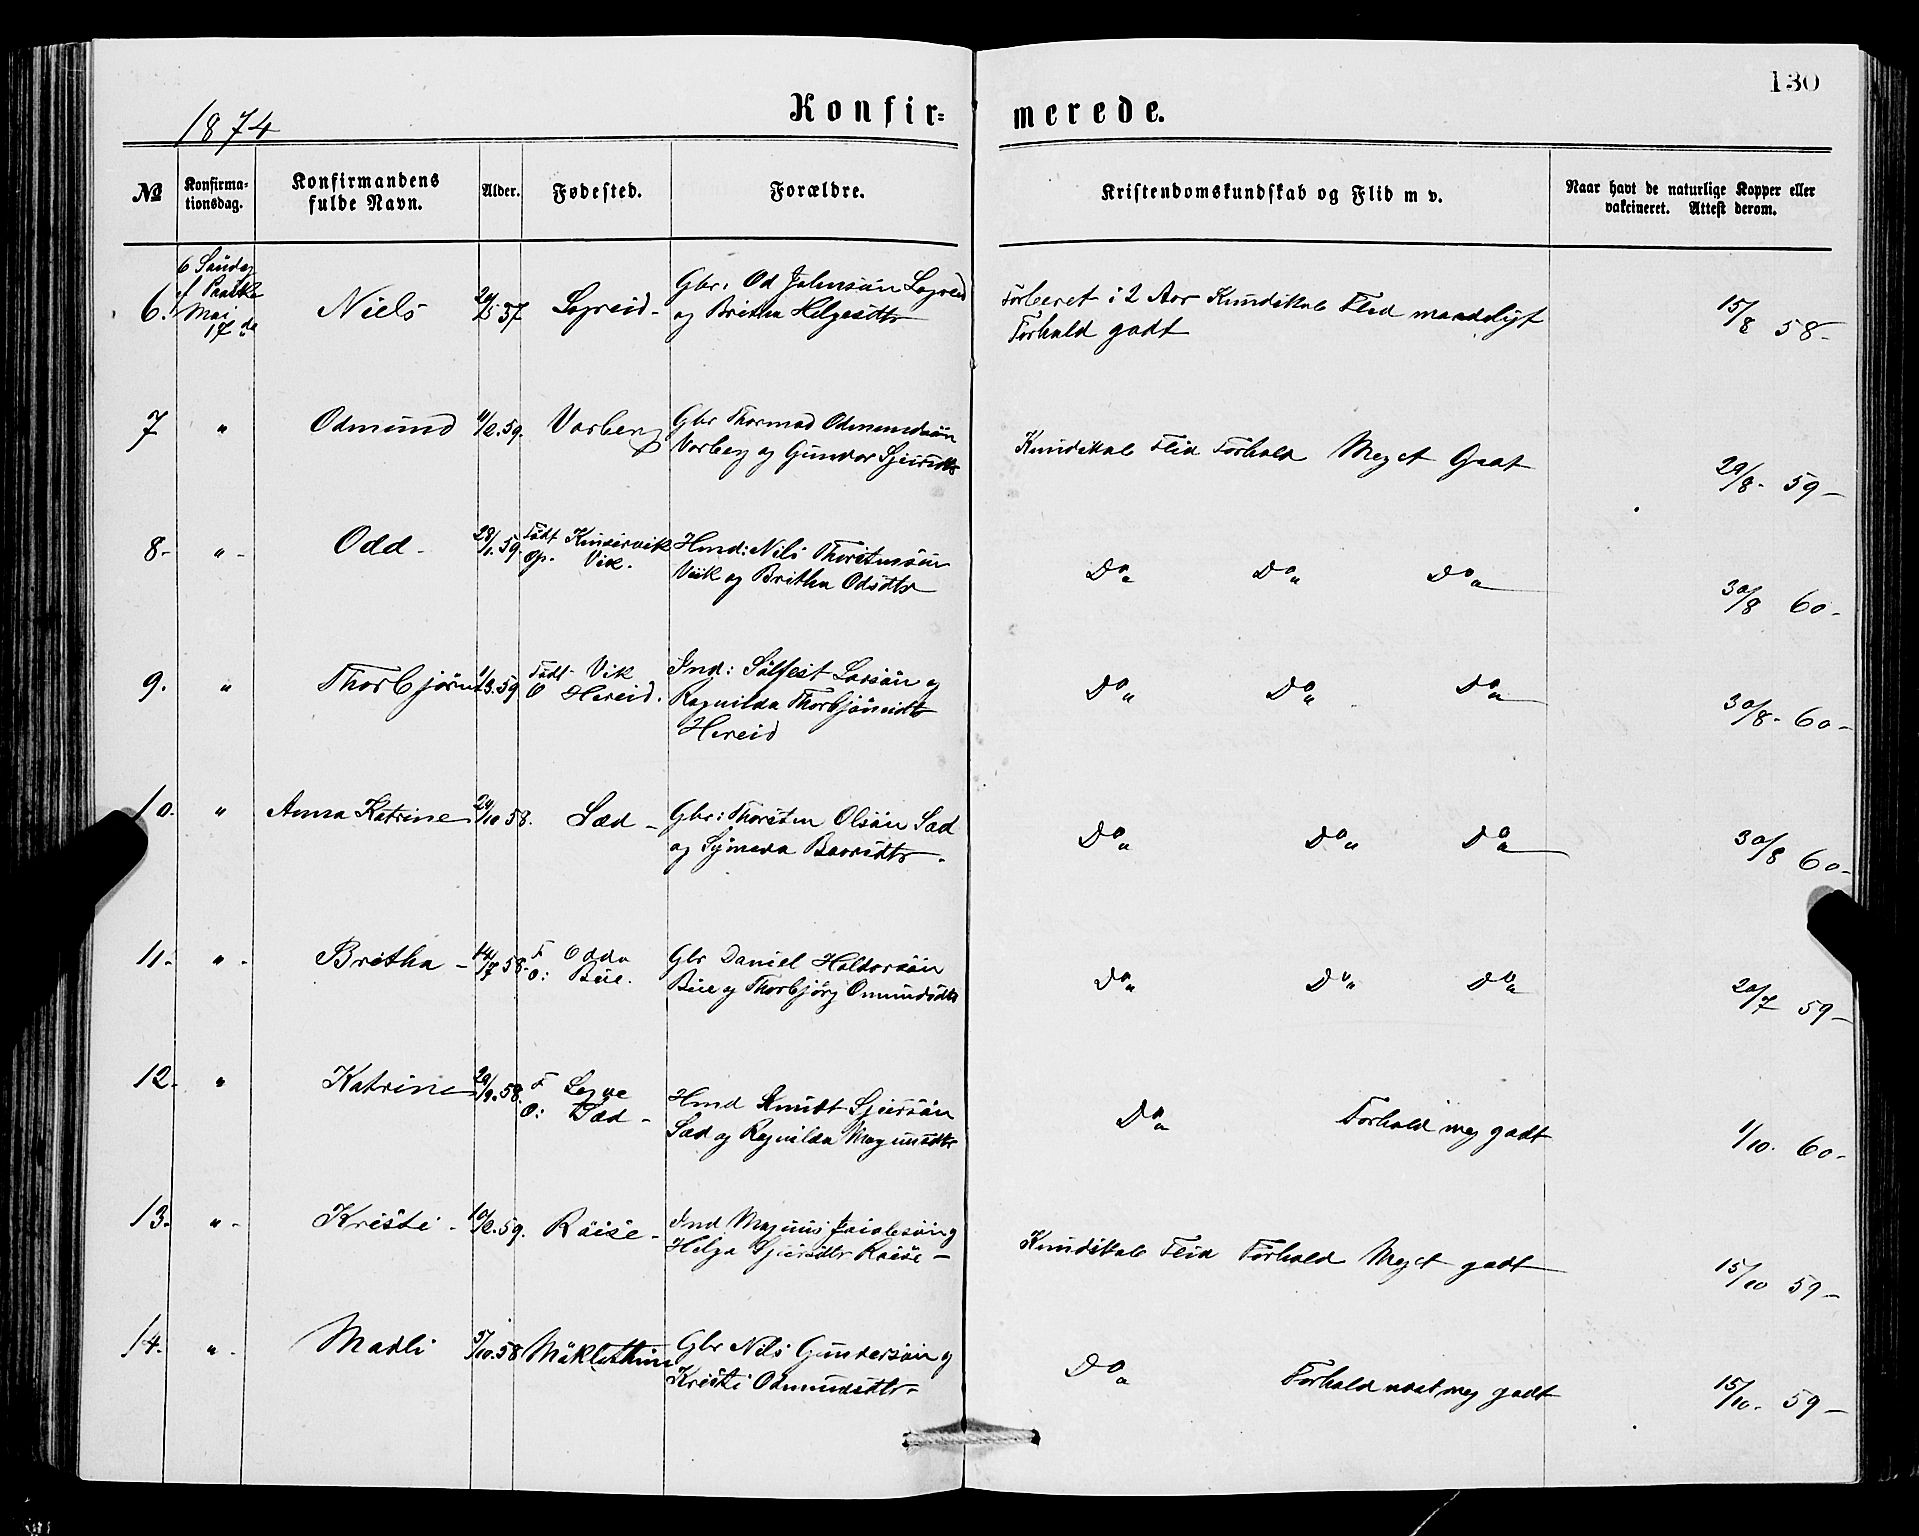 130
1874
Konfir=
merede.
№
Konfirma-
tionsdag.
Konfirmandens
fulde Navn.
Alder.
Fødested.
Forældre.
Kristendomskundskab og Flid m v.
Naar havt de naturlige Kopper eller
vakcineret. Attest derom.
6.
6 Søndag
Mai
17de
Niels
57
Legreid -
Gbr: Od Johnsøn Legreid
og Britha Helgesdtr
Forberet i 2 Aar Kundskab Flid maadeligt
Forhold godt
15/8 58 -
7
"
Odmund
11/2. 59.
Varberg
Gbr Thormod Odmundsøn
Varberg og Gundor Sjursdtr
Kundskab Flid Forhold Meget Godt
29/8 - 59 -
8 -
" -
Odd -
28/1. 59
Født Kinservik
Op. Vik.
Hmd: Nils Thorstensøn
Viik og Britha Odsdtr
Do " Do " Do "
30/8 60 -
9.
"
Thorbjørn
1/3. 59
Født Vik
O Hereid.
Ind: Sølfest Larsøn og
Ragnilda Thorbjørnsdtr
Hereid
Do " Do " Do "
30/8 - 60 -
10.
"
Anna Katrine
24/10 58.
Sæd -
Gbr: Thorsten Olsøn Sæd
og
Do " Do " Do "
30/8 60 -
11.
" -
Britha -
14/7 58 -
F Odda
O: Büe.
Gbr Daniel Haldorsøn
Büe og Thorbjørg Omundsdtr
Do " Do " Do "
20/7 59 -
12.
"
Katrine
29/9. 58.
F Legve
O: Sæd -
Hmd Knudt Sjursøn
Sæd og Ragnilda Magnusdtr
Do " Forhold meg godt
1/10. 60 -
13.
" -
Kristi -
10/2. 59.
Røise -
Ind Magnus og
Helga Sjursdtr Røise -
Kundskab Flid Forhold Meget godt
15/10 59 -
14.
" -
Madli
5/10. 58
Mäkletthun
Gbr Nils Gundersøn og
Kristi Odmundsdtr -
Do " Forhold meg godt
15/10. 59 -